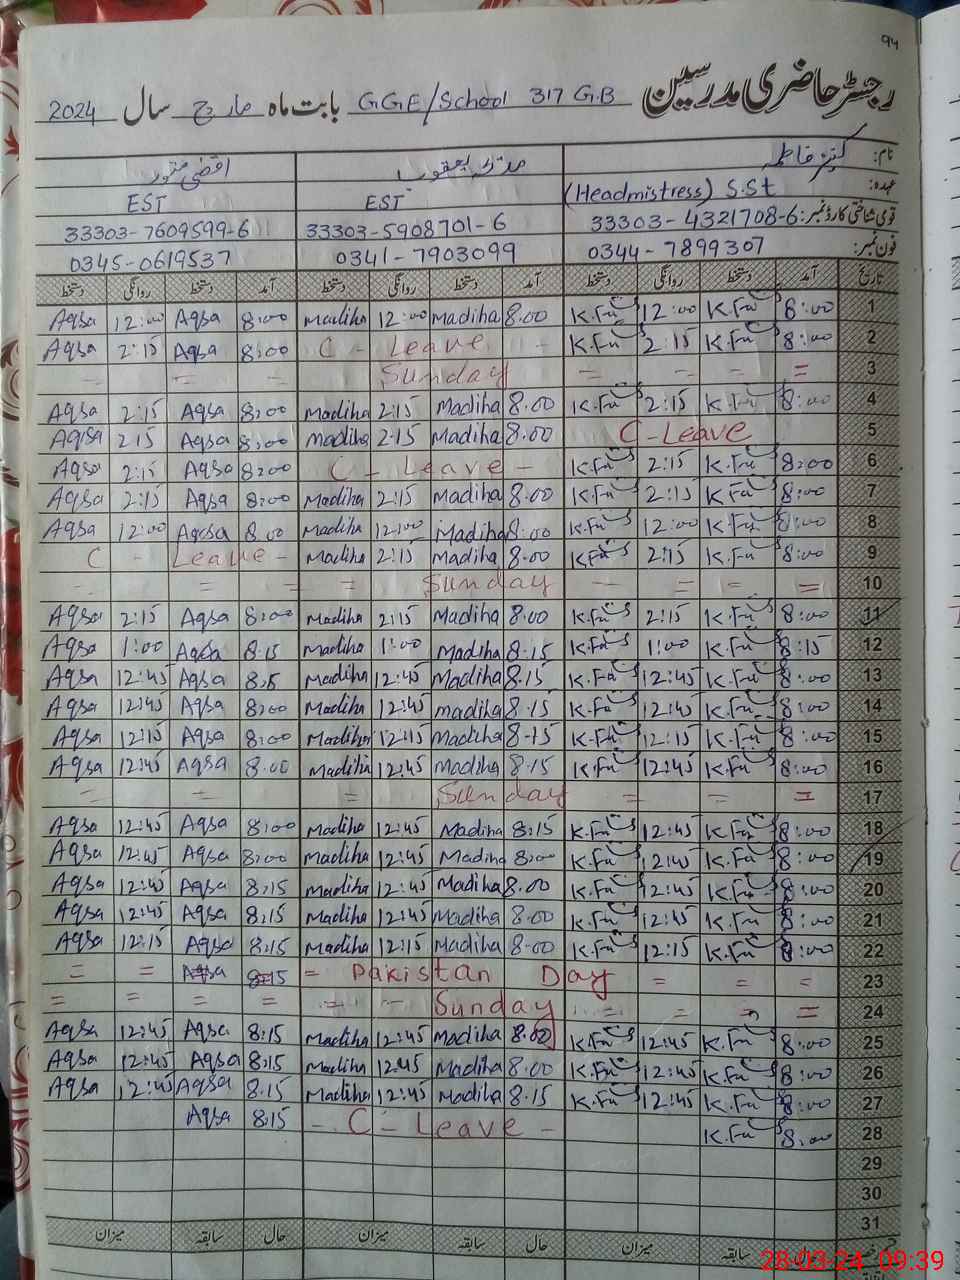 94
رجسٹر حاضری مدرسین GGE/School 317 G.B بابت ماہ مارچ سال 2024
نام: کنیز فاطمہ
عہدہ: (Headmistress) S.St EST EST
قومی شناختی کارڈ نمبر: 33303-4321708-6 33303-5908701-6 33303-7609599-6
فون نمبر: 0344-7899307 0341-7903099 0345-0619537
تاریخ آمد دستخط روانگی دستخط آمد دستخط روانگی دستخط آمد دستخط روانگی دستخط
Aqsa 12:00 Aqsa 8:00 Madiha 12:00 Madiha 8.00 K.Fa 12:00 K.Fa 8:00 1
Aqsa 2:15 Aqsa 8:00 C - Leave - K.Fa 2:15 K.Fa 8:00 2
Sunday = = = = 3
Aqsa 2:15 Aqsa 8:00 Madiha 2:15 Madiha 8.00 K.Fa 2:15 K.Fa 8:00 4
Aqsa 2:15 Aqsa 8:00 Madiha 2:15 Madiha 8.00 C-Leave 5
Aqsa 2:15 Aqsa 8:00 C - Leave - K.Fa 2:15 K.Fa 8:00 6
Aqsa 2:15 Aqsa 8:00 Madiha 2:15 Madiha 8.00 K.Fa 2:15 K.Fa 8:00 7
Aqsa 12:00 Aqsa 8.00 Madiha 12:00 Madiha 8:00 K.Fa 12:00 K.Fa 8:00 8
C - Leave - Madiha 2:15 Madiha 8.00 K.Fa 2:15 K.Fa 8:00 9
= = = Sunday = = = = 10
Aqsa 2:15 Aqsa 8:00 Madiha 2:15 Madiha 8.00 K.Fa 2:15 K.Fa 8:00 11
Aqsa 1:00 Aqsa 8.15 Madiha 1:00 Madiha 8.15 K.Fa 1:00 K.Fa 8:15 12
Aqsa 12:45 Aqsa 8.15 Madiha 12:45 Madiha 8.15 K.Fa 12:45 K.Fa 8:00 13
Aqsa 12:45 Aqsa 8:00 Madiha 12:45 Madiha 8.15 K.Fa 12:45 K.Fa 8:00 14
Aqsa 12:15 Aqsa 8:00 Madiha 12:15 Madiha 8-15 K.Fa 12:15 K.Fa 8:00 15
Aqsa 12:45 Aqsa 8.00 Madiha 12:45 Madiha 8.15 K.Fa 12:45 K.Fa 8:00 16
= = = Sunday = = = = 17
Aqsa 12:45 Aqsa 8:00 Madiha 12:45 Madiha 8:15 K.Fa 12:45 K.Fa 8:00 18
Aqsa 12:45 Aqsa 8:00 Madiha 12:45 Madiha 8:00 K.Fa 12:45 K.Fa 8:00 19
Aqsa 12:45 Aqsa 8:15 Madiha 12:45 Madiha 8.00 K.Fa 12:45 K.Fa 8:00 20
Aqsa 12:45 Aqsa 8:15 Madiha 12:45 Madiha 8.00 K.Fa 12:45 K.Fa 8:00 21
Aqsa 12:15 Aqsa 8:15 Madiha 12:15 Madiha 8-00 K.Fa 12:15 K.Fa 8:00 22
= = Aqsa 8:15 = Pakistan Day = = = 23
= = = = = - Sunday = = = = 24
Aqsa 12:45 Aqsa 8:15 Madiha 12:45 Madiha 8.00 K.Fa 12:45 K.Fa 8:00 25
Aqsa 12:45 Aqsa 8:15 Madiha 12:45 Madiha 8.00 K.Fa 12:45 K.Fa 8:00 26
Aqsa 12:45 Aqsa 8.15 Madiha 12:45 Madiha 8.15 K.Fa 12:45 K.Fa 8:00 27
Aqsa 8.15 - C - Leave - K.Fa 8:00 28
29
30
31
حال سابقہ میزان حال سابقہ میزان سابقہ میزان
28-03-24 09:39